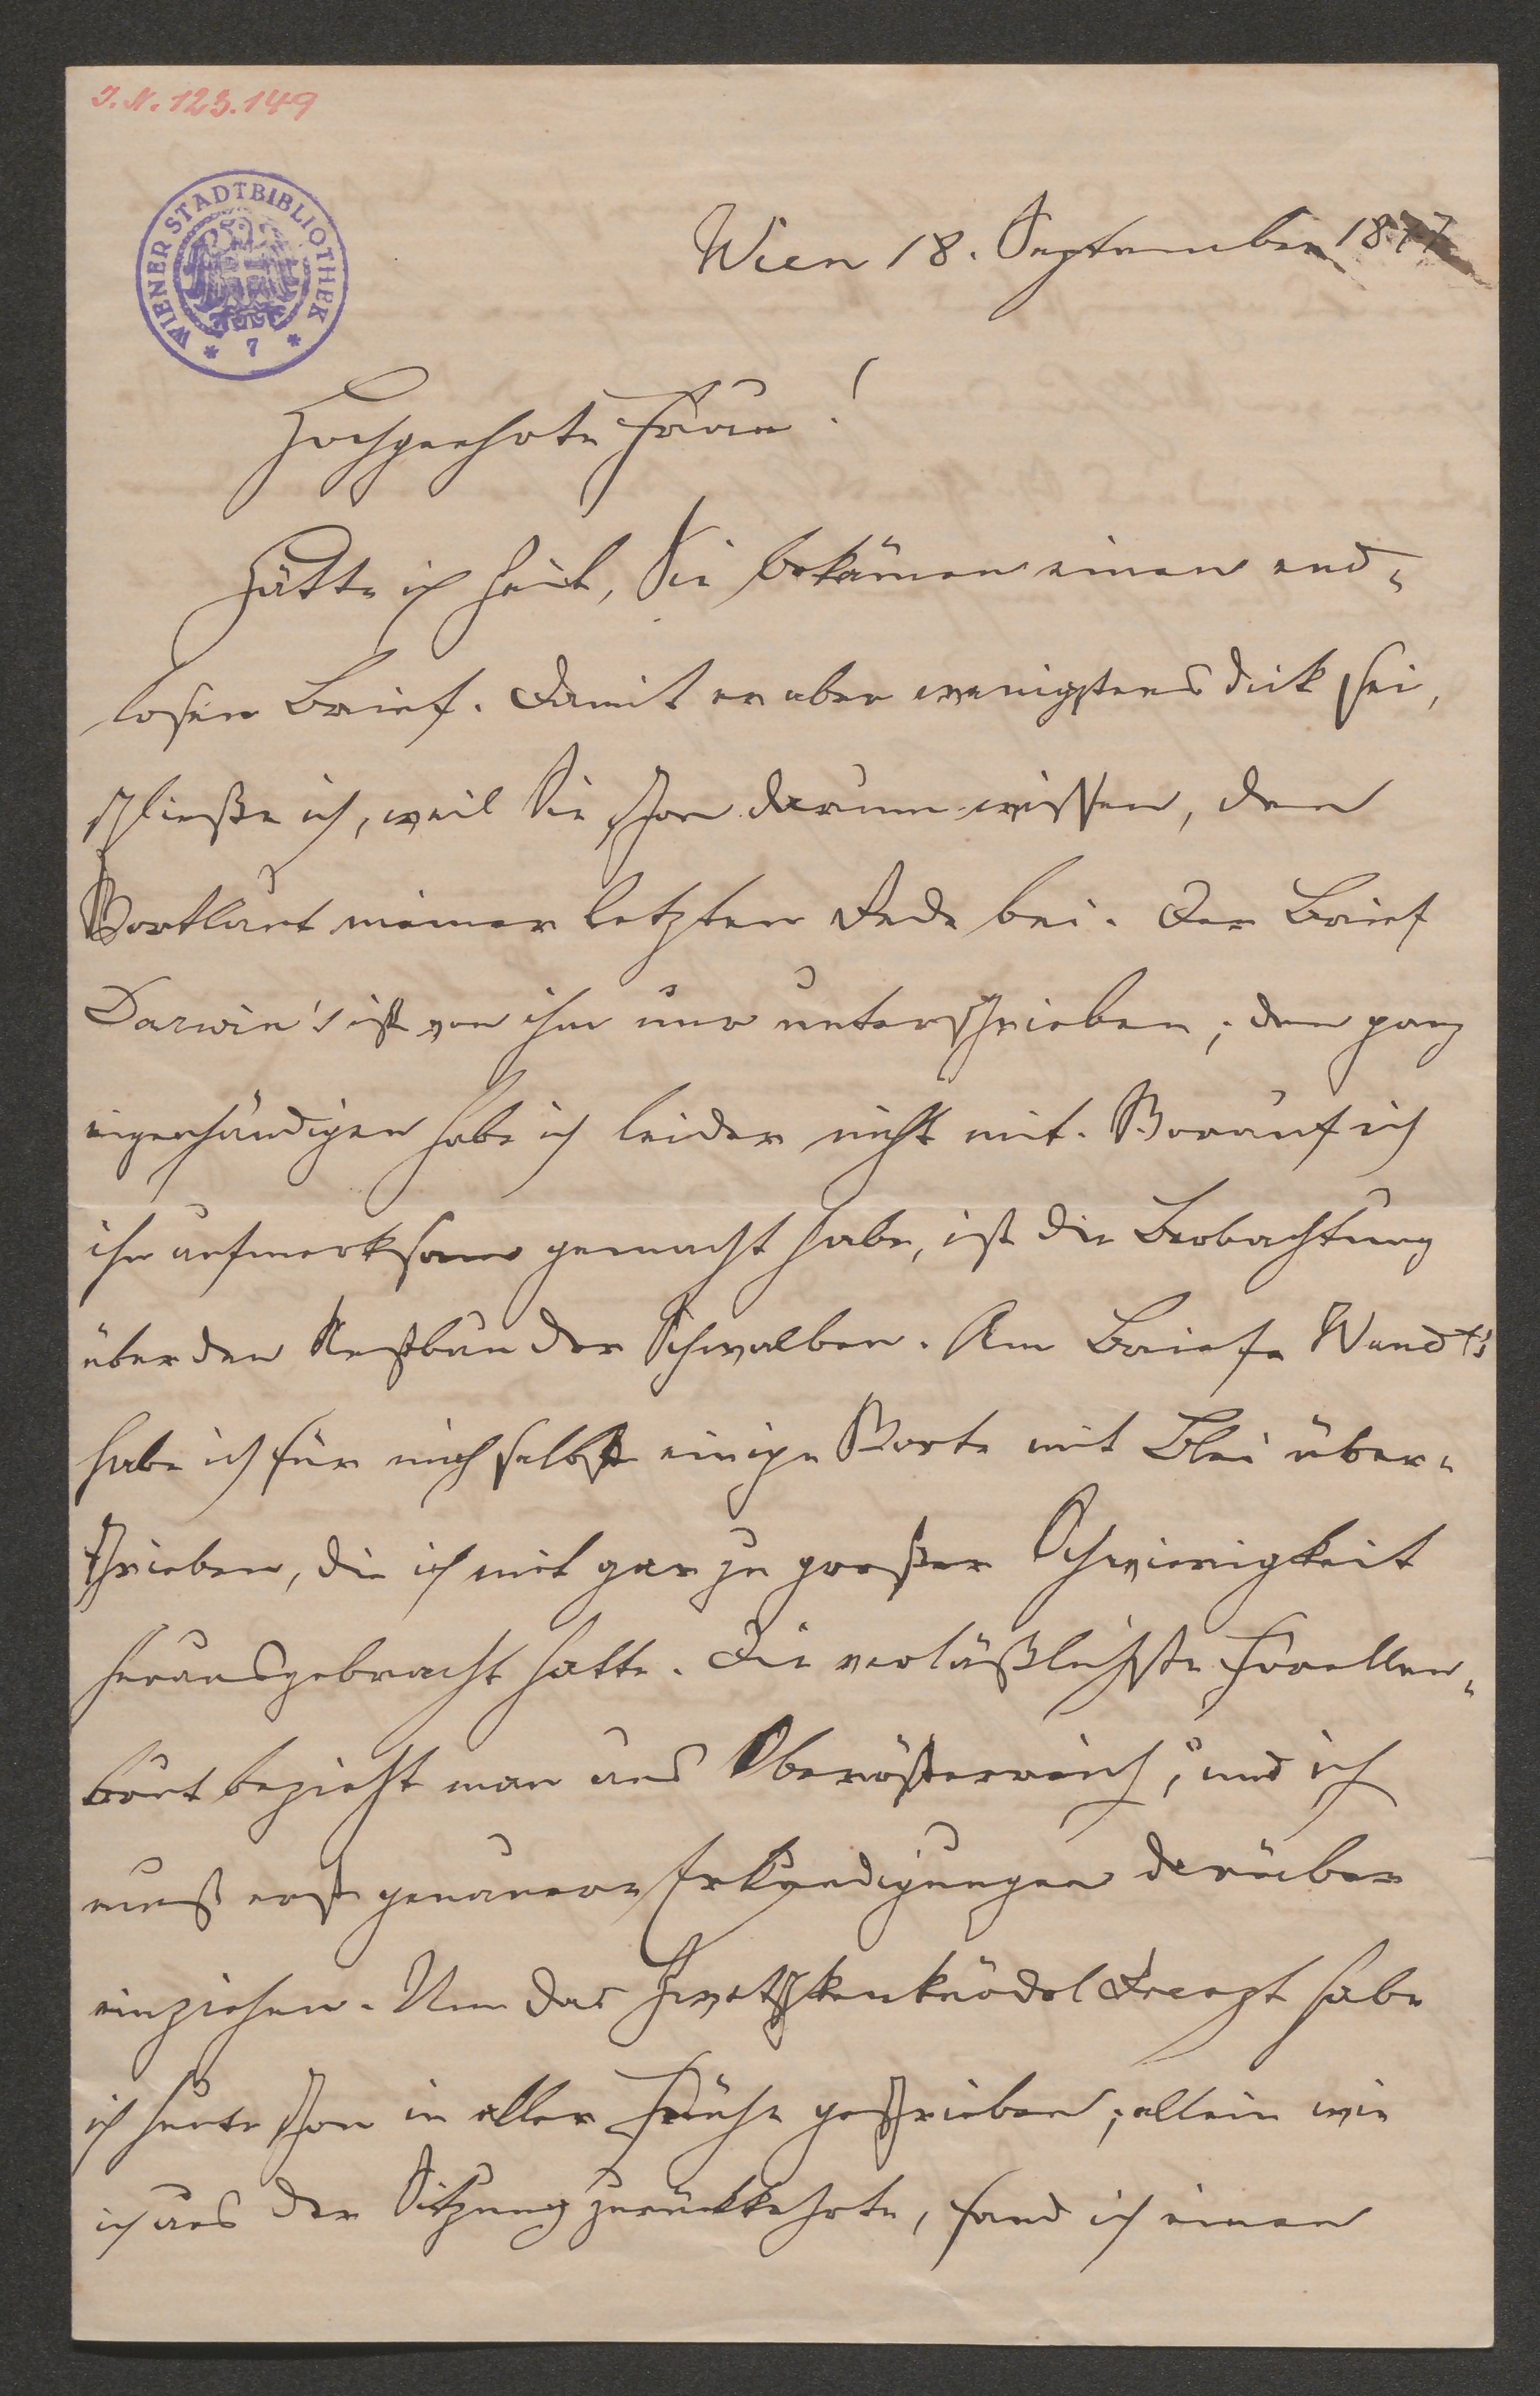 J. N. 123.149
WIENER STADTBIBLIOTHEK
* 7 *
Wien 18. September 1877
Hochgeehrte Frau!
Hätte ich Zeit, Sie bekämen einen end-
losen Brief. Damit er aber wenigstens dick sei,
schließe ich, weil Sie schon darum wissen, den
Wortlaut meiner letzten Rede bei. Der Brief
Darwin's ist von ihm nur unterschrieben; den ganz
eigenhändigen habe ich leider nicht mit. Worauf ich
ihn aufmerksam gemacht habe, ist die Beobachtung
über den Nestbau der Schwalben. Am Briefe Wundt's
habe ich für mich selbst einige Worte mit Blei über-
schrieben, die ich mit gar zu großer Schwierigkeit
herausgebracht hatte. Die verläßlichste Forellen-
brut bezieht man aus Oberösterreich, und ich
muß erst genauere Erkundigungen darüber
einziehen. Um das Zwetschkenknödel Recept habe
ich heute schon in aller Frühe geschrieben; allein wie
ich aus der Sitzung zurückkehrte, fand ich einen